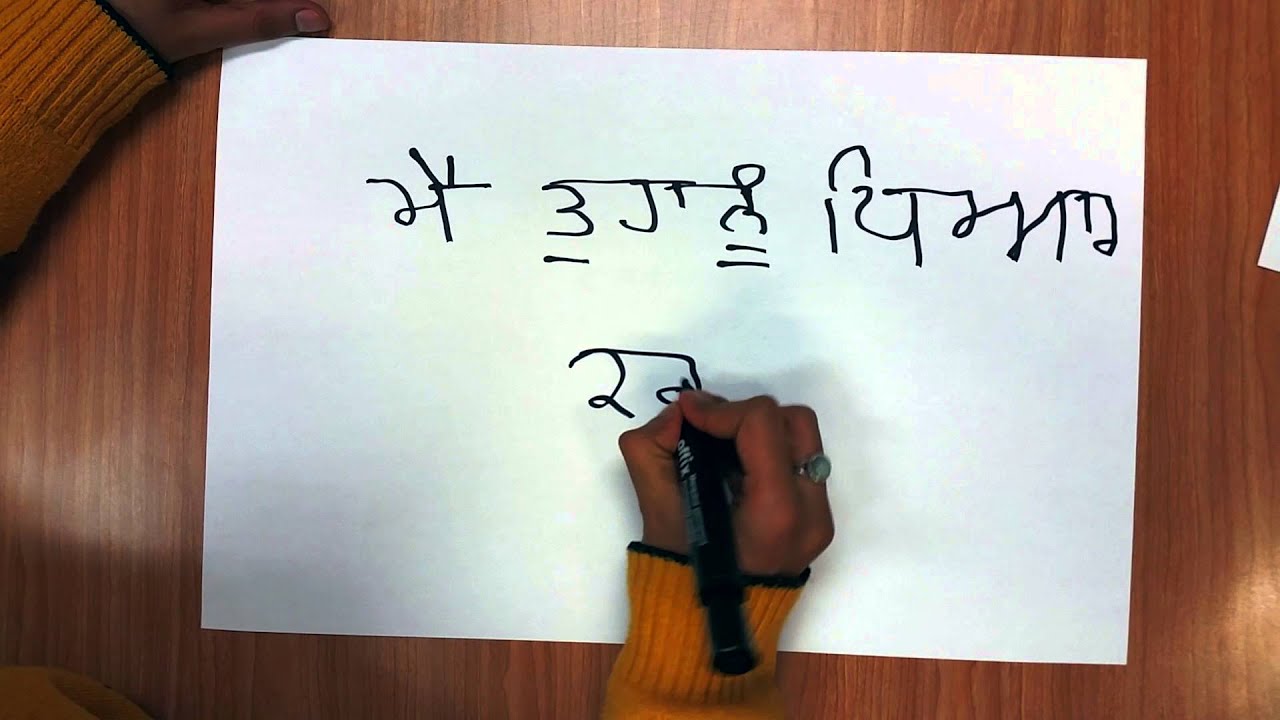 ਮੈਂ ਤੁਹਾਨੂੰ ਪਿਆਰ